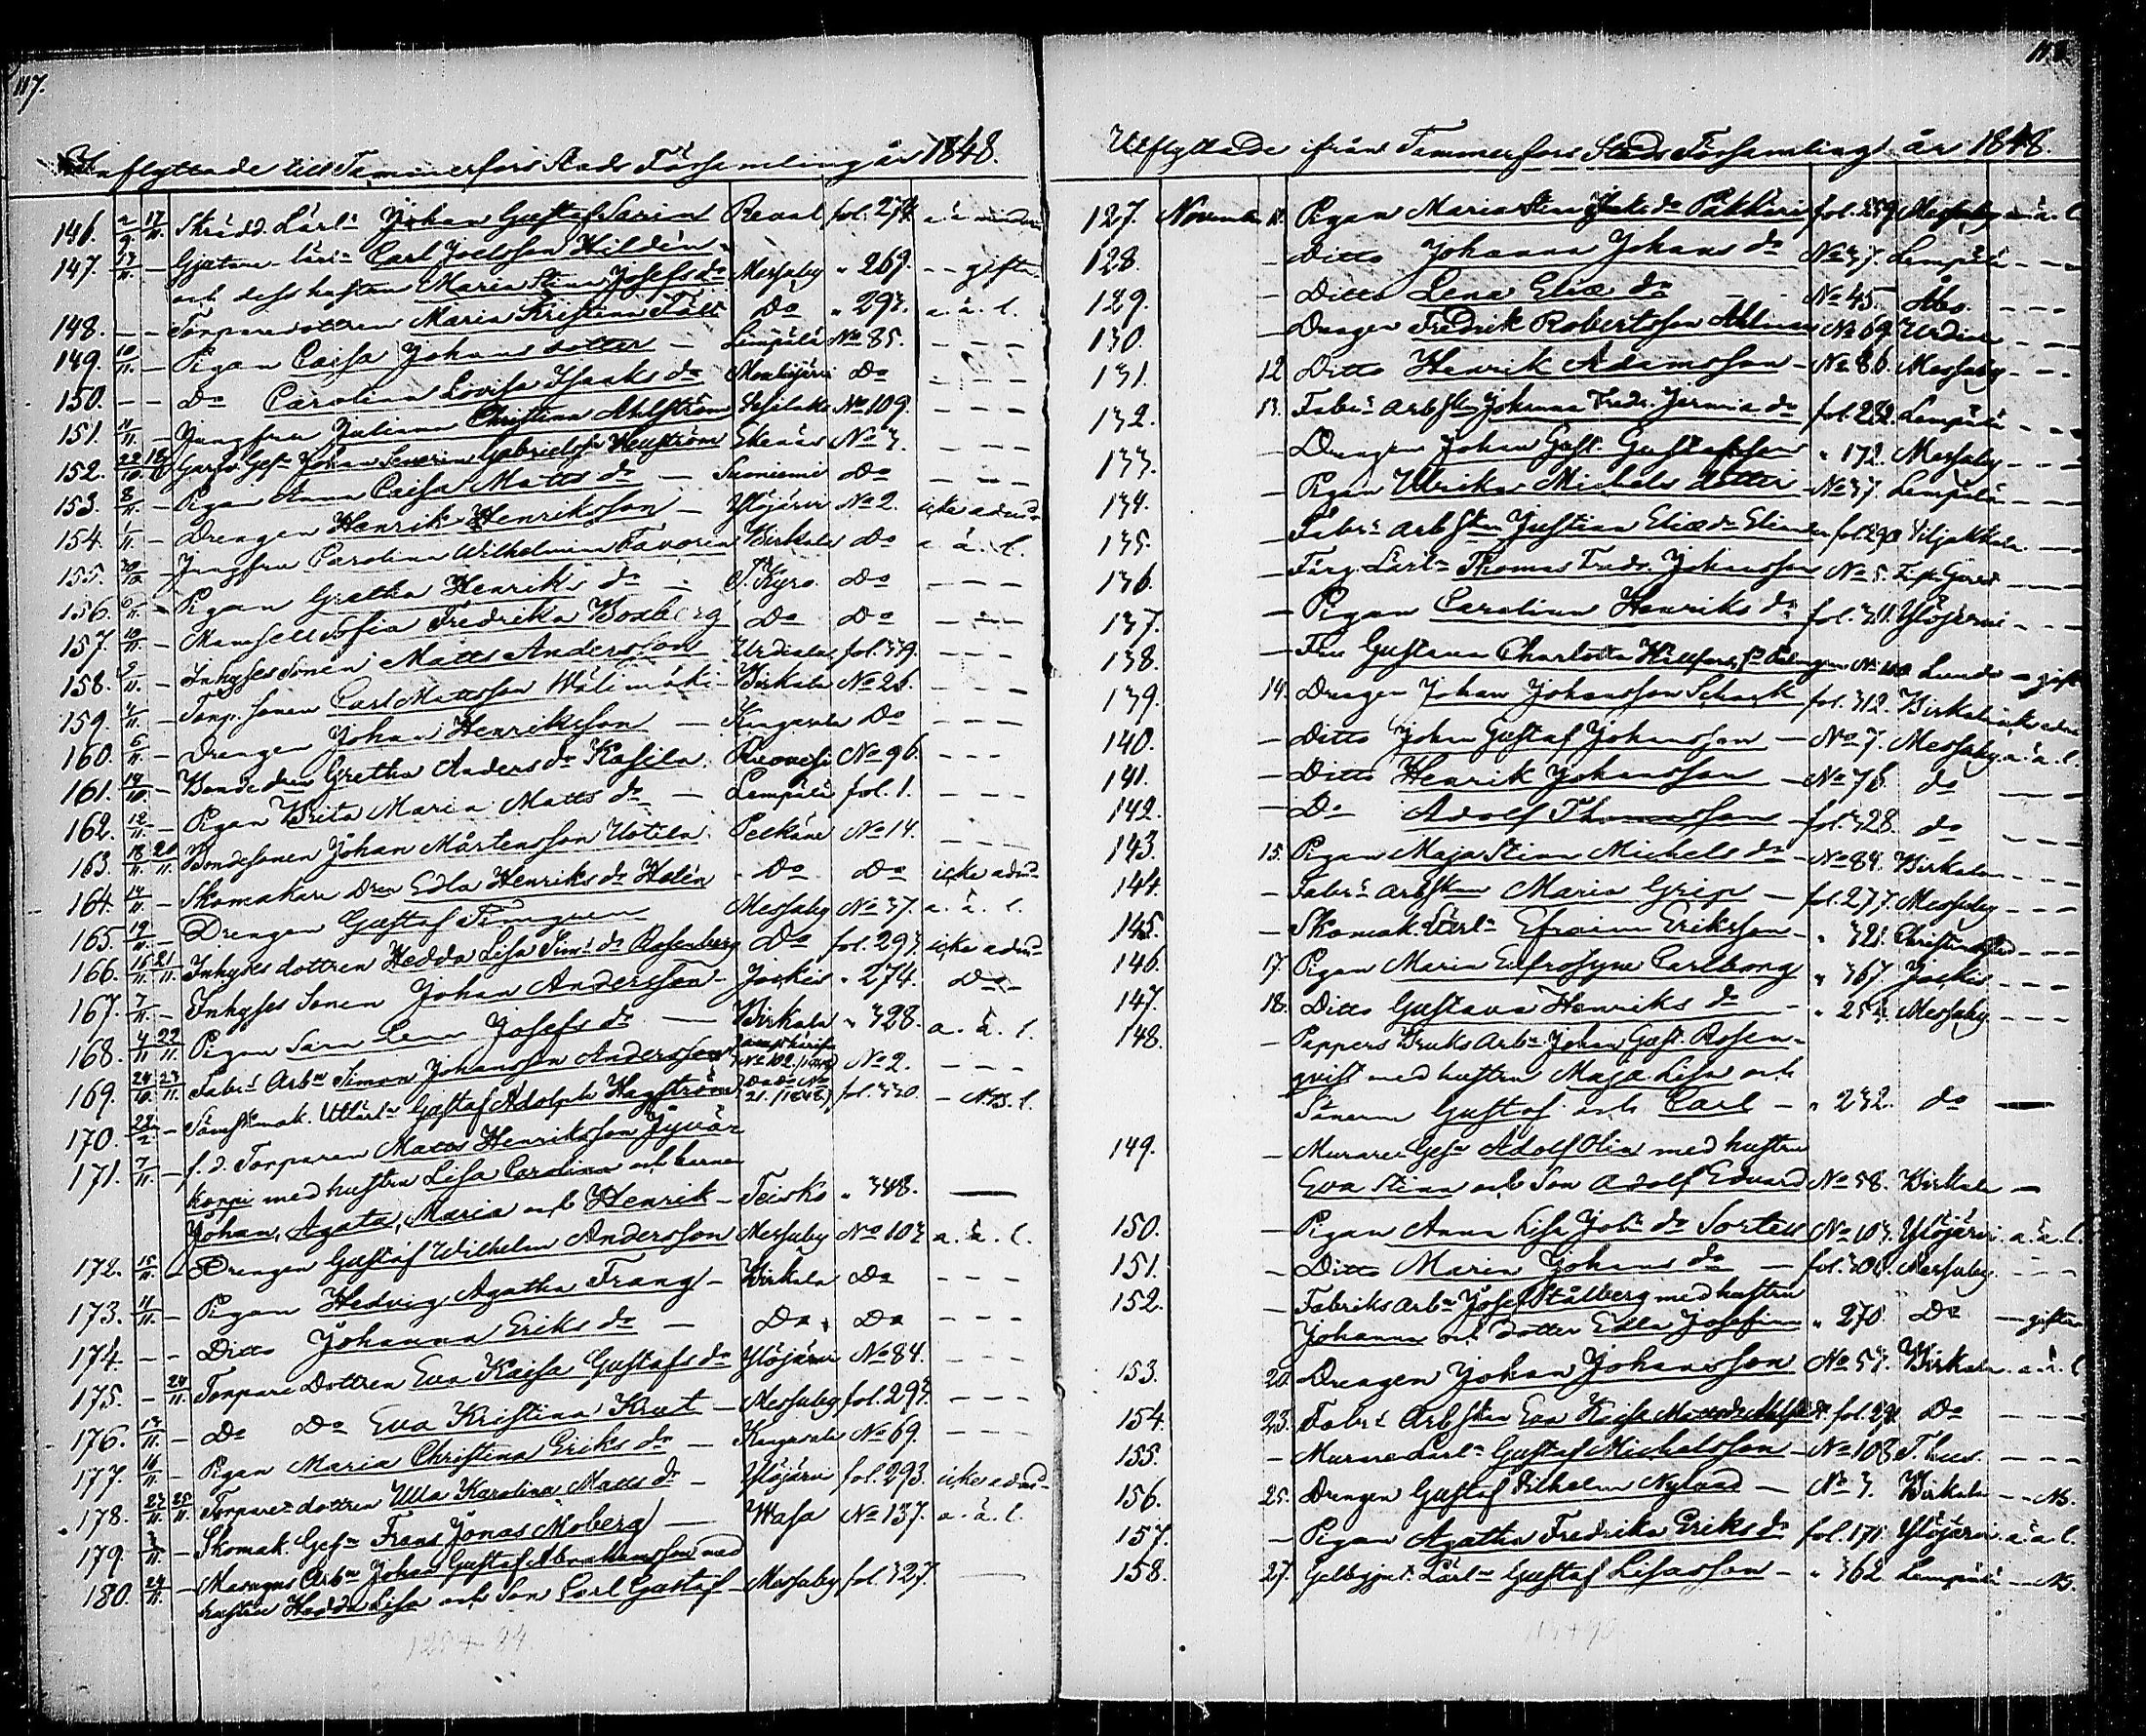 117.
Inflyttade till Tammerfors Stads Församling år 1848.
146. 2/9 17/11. Skrädd. Lärl: Johan Gustaf Sarin Reval fol. 274
147. 13/11. – Gjutare lärl: Carl Joelsson Hildén
och dess hustru Maria Stina Josefs dr Messuby " 269. – – gifta
148. – – Torparedottren Maria Kristina Fält Do " 293. a. ä. l.
149. 10/11. – Pigan Caisa Johans dotter – Lempälä No 85. – – –
150. – – Do Carolina Lovisa Isaks dr Mouhijärvi Do – – –
151. 11/11. – Jungfru Juliana Christina Ahlström Vesilaks No 109. – – –
152. 22/10. 18/11. Garfv. Ges: Johan Severin Gabrielsson Ekenäs No 3. – – –
153. 8/11. – Pigan Anna Caisa Matts dr – Suoniemi Do – – –
154. 1/11. – Drengen Henrik Henriksson – Ylöjärvi No 2. icke adm:
155. 30/10. – Jungfru Carolina Wilhelmina Favorin Birkala Do a. ä. l.
156. 6/11. – Pigan Gretha Henriks dr – T. Kyro Do – – –
157. 10/11. – Mamsell Sofia Fredrika Boxberg Do Do – – –
158. 9/11. – Inhyses Sonen Matts Andersson Urdiala fol. 339. – – –
159. 4/11. – Torp. Sonen Carl Mattsson Wälimäki – Birkala No 26. – – –
160. 6/11. – Drengen Johan Henriksson – Kangasala Do – – –
161. 14/10. – Bonde dren Gretha Anders dr Kasila Ruovesi No 96. – – –
162. 12/11. – Pigan Brita Maria Matts dr – Lempälä fol. 1. – – –
163. 18/11. 20/11. Bondesonen Johan Mårtensson Uotila Pelkäne No 14. – – –
164. 14/11. – Skomakare dren Edla Henriks dr Holén – Do Do icke adm:
165. 19/11. – Drengen Gustaf Messuby No 37. a. ä. l.
166. 15/11. 21/11. Inhyses dottren Hedda Lisa Sim: dr Rosenberg Do fol. 293. icke adm:
167. 7/11. – Inhyses Sonen Johan Andersson – Jockis " 274. Do –
168. 4/11 22/11. Pigan Sara Lena Josefs dr – Birkala " 328. a. ä. l.
169. 24/10. 23/11. Fabr: Arb: Simon Johansson Andersson No 102. No 2. – – –
170. 22/2. – Utlärl: Gustaf Adolph Hagström Do Do No 21. (1848) fol. 330. – NB. l.
171. 7/11. – f. d. Torparen Matts Henriksson Jyvä
koppi med hustru Lisa Carolina och barnen
Johan, Agata, Maria och Henrik – Teisko " 348. —
172. 15/11. – Drengen Gustaf Wilhelm Andersson Messuby No 107 a. ä. l.
173. 11/11. – Pigan Hedvig Agatha Frang – Birkala Do – – –
174. – – Ditto Johanna Eriks dr – Do. Do – – –
175. – 24/11. Torpare Dottren Eva Kaisa Gustafs dr Ylöjärvi No 84. – – –
176. 14/11. – Do Do Eva Kristina Krut – Messuby fol. 293. – – –
177. 16/11. – Pigan Maria Christina Eriks dr – Kangasala No 69. – – –
178. 23/11. 25/11. Torpare dottren Ulla Karolina Matts dr – Ylöjärvi fol. 293. icke adm:
179. 3/11. – Skomak. Ges: Frans Jonas Moberg – Wasa No 137. a. ä. l.
180. 24/11. – Masugns Arb: Johan Gustaf Abrahamsson med
hustru Hedda Lisa och Son Carl Gustaf – Messuby fol. 327. —
Utflyttade ifrån Tammerfors Stads Församling år 1848.
127. November 11. Pigan Maria Stina dr Pakkari fol. 259 Messuby a. ä. l.
128. – Ditto Johanna Johans dr No 37. Lempälä – – –
129. – Ditto Lena Eliæ dr – No 45 Åbo. – – –
130. – Drengen Fredrik Robertsson Ahlman No 69 Urdiala – – –
131. 12 Ditto Henrik Adamsson – No 86. Messuby – – –
132. 13. Fabr: Arbskan Johanna Fredr. Jermia dr fol. 282. Lempälä – – –
133. – Drengen Johan Gust. Gustafsson " 172. Messuby – – –
134. – Pigan Ulrika Michels dotter – No 37. Lempälä – – –
135. – Fabr: Arbskan Justina Eliæ dr fol. 290 Viljakkala – – –
136. – Färg. Lärl: Thomas Fredr. Johansson No 5. – – –
137. – Pigan Carolina Henriks dr fol. 311. Ylöjärvi – – –
138. – Fru Gustava Charlotta No 100 Lundo – gift
139. 14. Drengen Johan Johansson Schark fol. 312. Birkala icke adm:
140. – Ditto Johan Gustaf Johansson – No 7. Messuby a. ä. l.
141. – Ditto Henrik Johansson – No 76 do – – –
142. – Do Adolf Thomasson – fol. 328. do – – –
143. 15. Pigan Maja Stina Michels dr – No 84. Birkala – – –
144. – Fabr: Arbskan Maria Grip – fol. 277. Messuby – – –
145. – Skomak. Lärl: Efraim Eriksson – " 321. Christinestad – – –
146. 17. Pigan Maria Eufrosyne Carlborg " 367 Jockis – – –
147. 18. Ditto Gustava Henriks dr – " 254. Messuby – – –
148. – Pappers Bruks Arb: Johan Gust. Rosen-
qvist med hustru Maja Lisa och
Sönerna Gustaf och Carl – " 232. do —
149. – Murare Ges: Adolf Olin med hustru
Eva Stina och Son Adolf Edvard No 58. Birkala –
150. – Pigan Anna Lisa Joh: dr Sorten No 107. Ylöjärvi a. ä. l.
151. – Ditto Maria Johans dr – fol. 301. Messuby – – –
152. – Fabriks Arb: Josef Stålberg med hustru
Johanna och Dotter Edla Josefina " 270 Do – gifta
153. 20. Drengen Johan Johansson No 57. Birkala a. ä. l.
154. 23. Fabr: Arbskan Eva Kaisa fol. 291 Do – – –
155. – Murare Lärl: Gustaf Michelsson – No 103 T. hus. – – –
156. 25. Drengen Gustaf Wilhelm Nylund – No 3. Birkala – – NB.
157. – Pigan Agatha Fredrika Eriks dr fol. 171 Ylöjärvi a. ä. l.
158. 27. Gelbgjut. Lärl: Gustaf Lisasson – " 362 Lempälä – – NB.